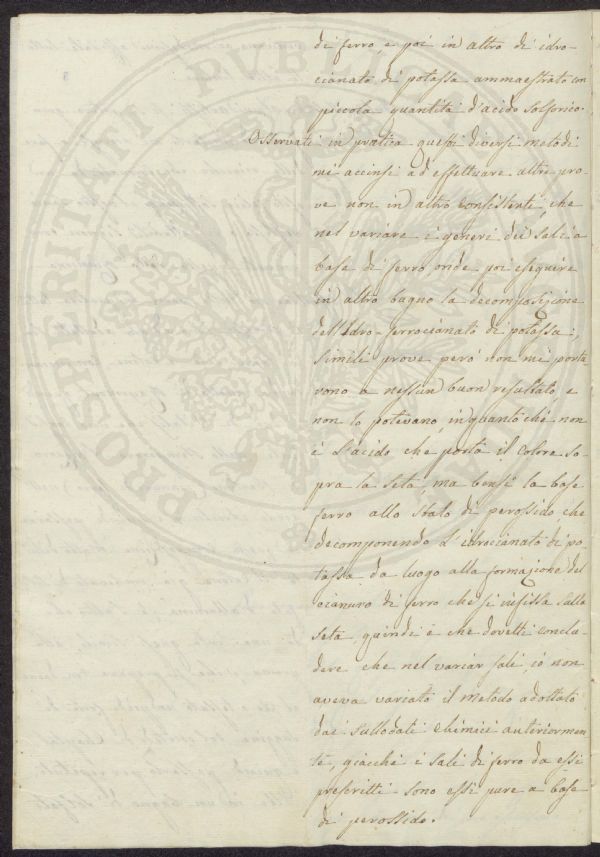 di ferro, e poi in altro di idro-
cianato di potassa ammaestrato con
piccola quantità d'acido solforico.
Osservati in pratica questi diversi metodi
mi accinsi ad effettuare altre pro-
ve non in altro consistenti, che
nel variare i generi dei sali a
base di ferro onde poi eseguire
in altro bagno la decomposizione
dell'Idro-ferrocianato di potassa;
simili prove però non mi porta
vono a nessun buon resultato, e
non lo potevano, in quanto chè non
è l'acido che porta il colore so
pra la seta, ma bensì la base
ferro allo stato di perossido, che
decomponendo l'idrocianato di po
tassa da luogo alla formazione del
cianuro di ferro che si infissa sulla
seta, quindi è che dovetti conclu
dere che nel variar sali, io non
aveva variato il metodo adottato
dai sullodati Chimici anteriormen
te, giacchè i sali di ferro da essi
prescritti sono essi pure a base
di perossido.
PROSPERITATI PVBLICAE